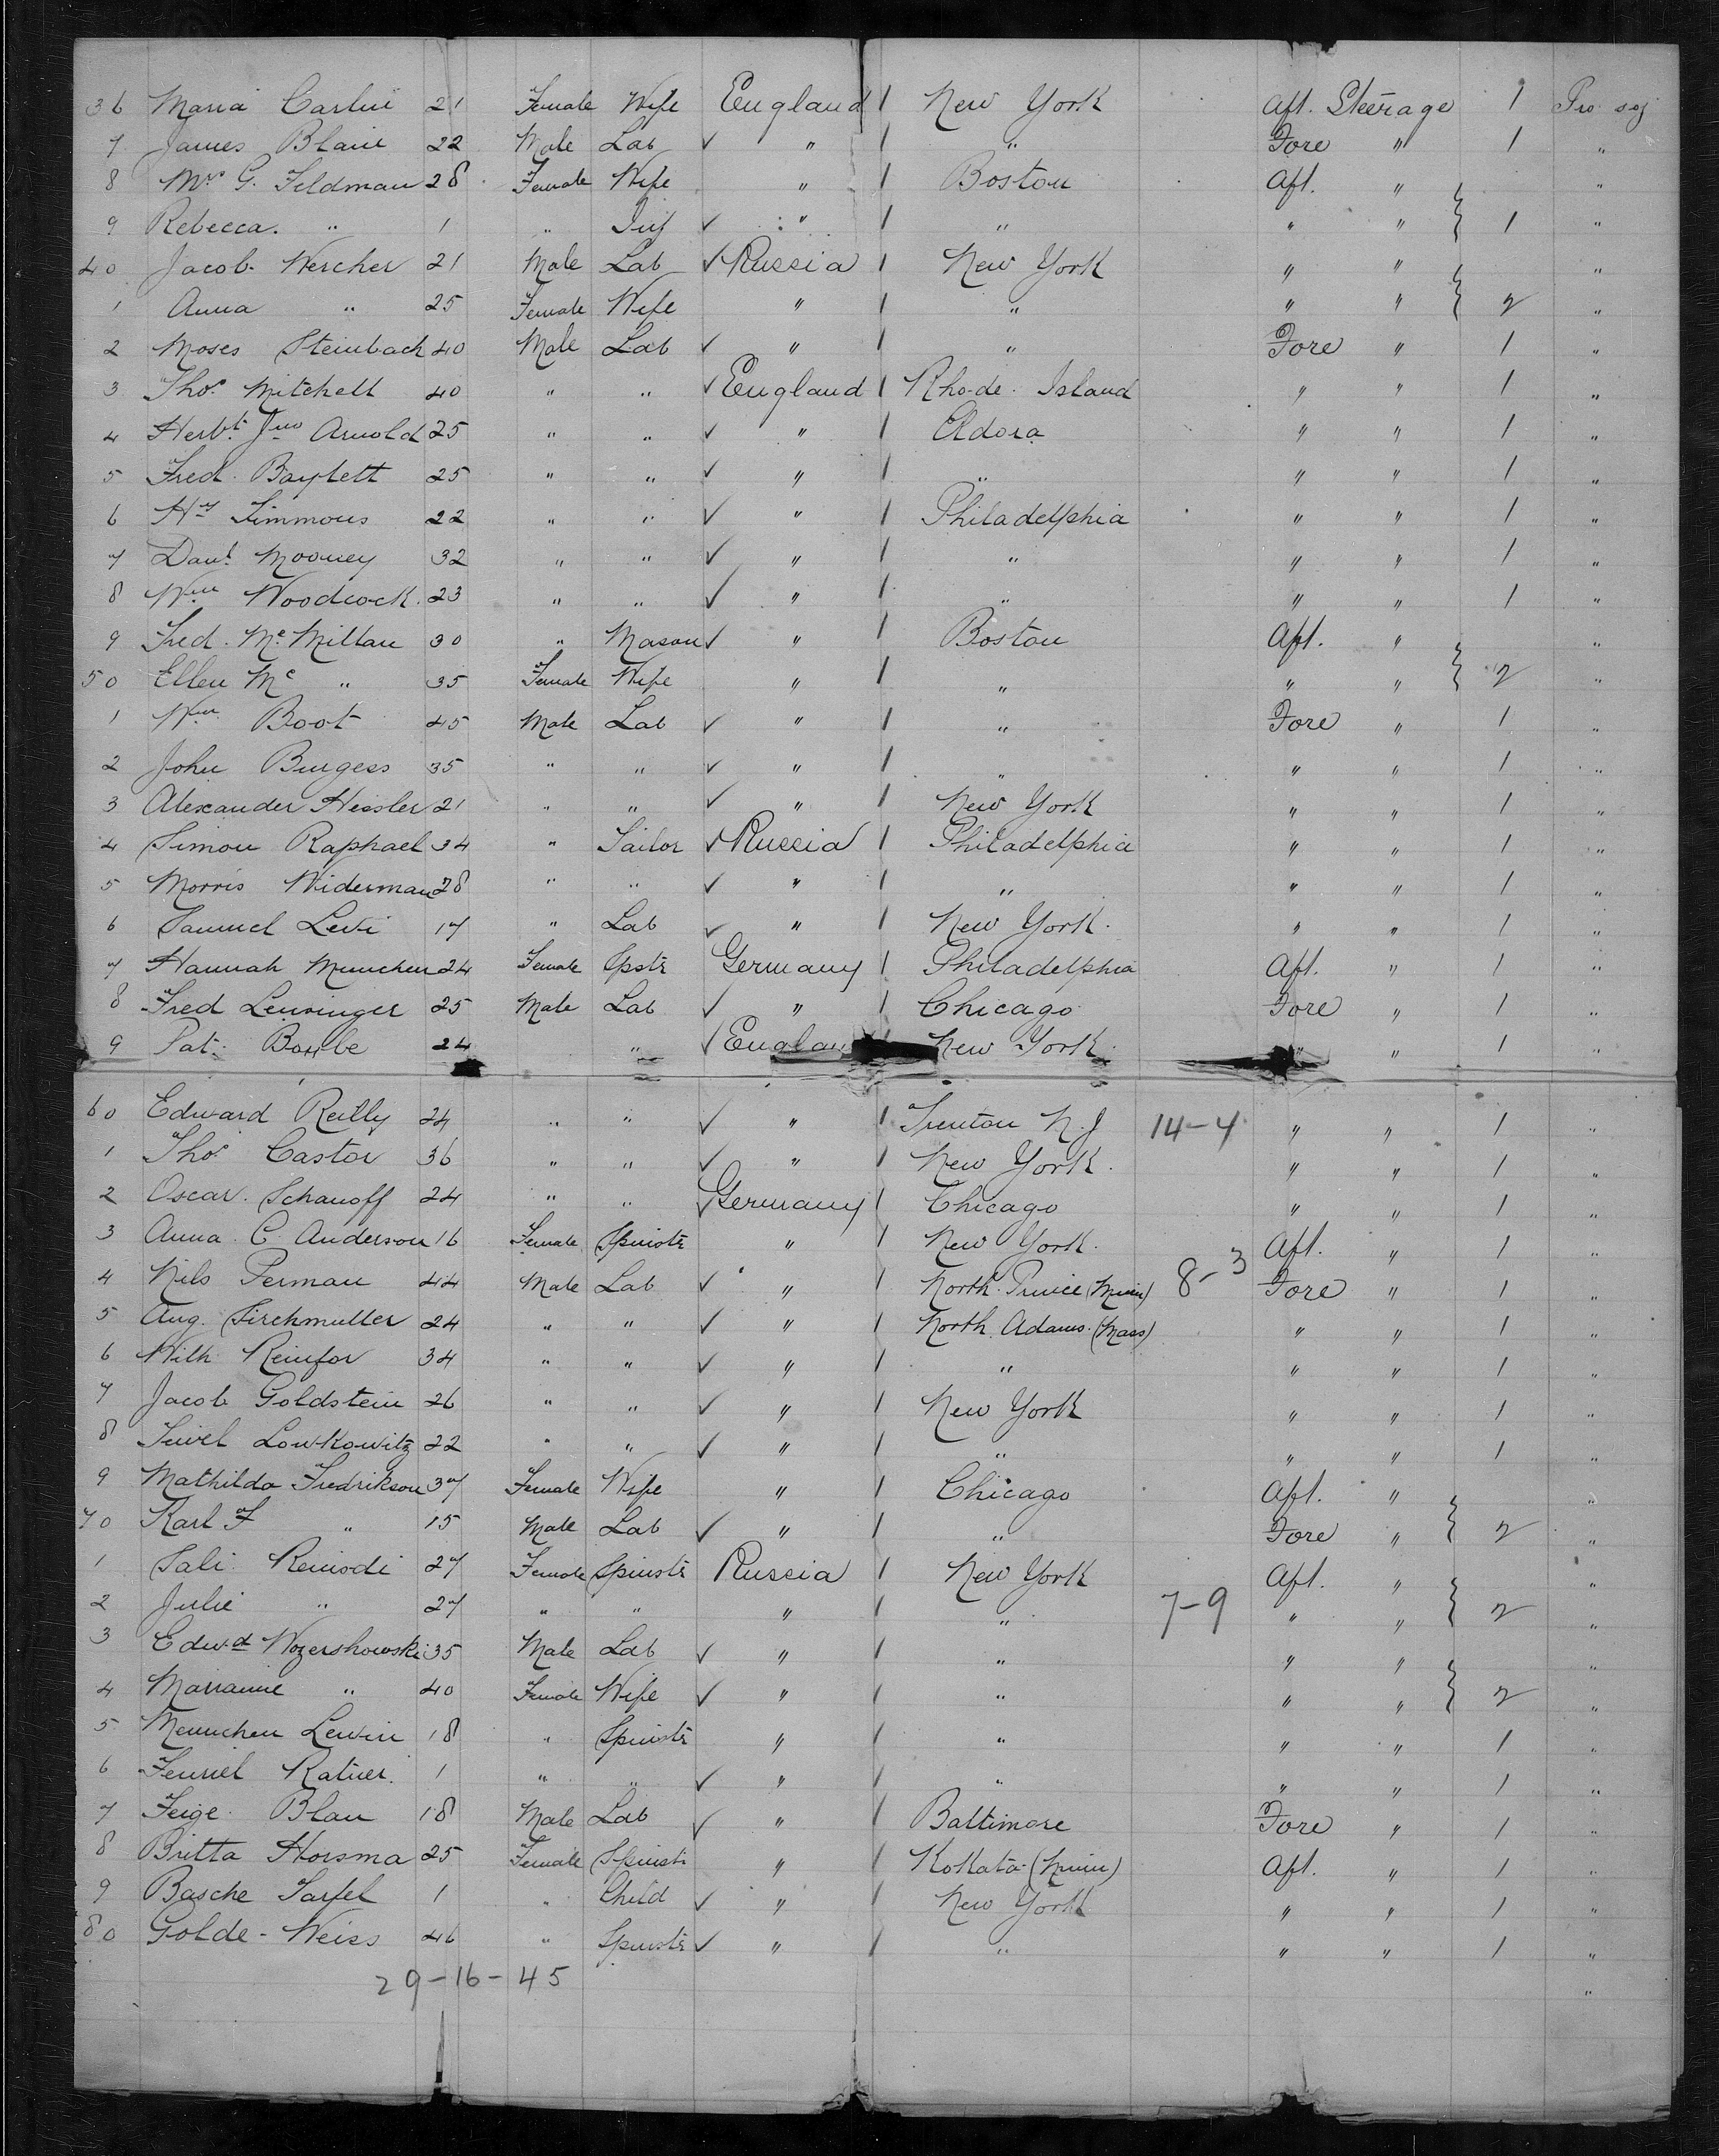 36 Maria Carlin 21 Female Wife England 1 New York Aft. Steerage 1 Pro soj
7 James Blain 22 Male Lab ✓ " 1 " Fore " 1 "
8 Mrs G. Feldman 28 Female Wife " 1 Boston Aft. " "
9 Rebecca. " 1 " Inf ✓ " 1 " " " 1 "
40 Jacob Wercher 21 Male Lab ✓ Russia 1 New York " " "
1 Anna " 25 Female Wife " 1 " " " 2 "
2 Moses Steinbach 40 Male Lab ✓ " 1 " Fore " 1 "
3 Thos. Mitchell 40 " " ✓ England 1 Rhode. Island " " 1 "
4 Herbt. Jno Arnold 25 " " ✓ " 1 Eldora " " 1 "
5 Fred. Baytett 25 " " ✓ " 1 " " " 1 "
6 Hy Simmons 22 " " ✓ " 1 Philadelphia " " 1 "
7 Danl. Mooney 32 " " ✓ " 1 " " " 1 "
8 Wm Woodcock. 23 " " ✓ " 1 " " " 1 "
9 Fred. Mc Millan 30 " Mason ✓ " 1 Boston Aft. " "
50 Ellen Mc " 35 Female Wife " 1 " " " 2 "
1 Wm Boot 45 Male Lab ✓ " 1 " Fore " 1 "
2 John Burgess 35 " " ✓ " 1 " " " 1 "
3 Alexander Hessler 21 " " ✓ " 1 New York " " 1 "
4 Simon Raphael 34 " Tailor ✓ Russia 1 Philadelphia " " 1 "
5 Morris Widerman 28 " " ✓ " 1 " " " 1 "
6 Samuel Levi 17 " Lab ✓ " 1 New York. " " 1 "
7 Hannah Munchen 24 Female Spstr Germany 1 Philadelphia Aft. " 1 "
8 Fred Lensinger 25 Male Lab ✓ " 1 Chicago Fore " 1 "
9 Pat. 24 " ✓ England New York. " " 1 "
60 Edward Reilly 24 " " ✓ " 1 Trenton N.J 14-4 " " 1 "
1 Thos. Castor 36 " " ✓ " 1 New York. " " 1 "
2 Oscar. Schanoff 24 " " ✓ Germany 1 Chicago " " 1 "
3 Anna C Anderson 16 Female Spinstr " 1 New York. Aft. " 1 "
4 Nils Perman 44 Male Lab ✓ " 1 North (Minn) 8-3 Fore " 1 "
5 Aug. Sirchmuller 24 " " ✓ " 1 North. Adams. (Mass) " " 1 "
6 Wilh Reinfor 34 " " ✓ " 1 " " " 1 "
7 Jacob Goldstein 26 " " ✓ " 1 New York " " 1 "
8 Lowkowitz 22 " " ✓ " 1 " " " 1 "
9 Mathilda Fredrikson 37 Female Wife " 1 Chicago Aft. " "
70 Karl F " 15 Male Lab ✓ " 1 " Fore " 2 "
1 Sali Reinsdi 27 Female Spinstr Russia 1 New York Aft. " "
2 Julie " 27 " " " 1 " 7-9 " " 2 "
3 Edwd Wozershowski 35 Male Lab ✓ " 1 " " " "
4 Marianne " 40 Female Wife ✓ " 1 " " " 2 "
5 Mennchen Lewin 18 " Spinstr " 1 " " " 1 "
6 Ratner. 1 " " ✓ " 1 " " " 1 "
7 Feige. Blau 18 Male Lab ✓ " 1 Baltimore Fore " 1 "
8 Britta Horsma 25 Female Spinstr " 1 Kokata (Minn) Aft. " 1 "
9 Basche Sarfel 1 " Child ✓ " 1 New York " " 1 "
80 Golde - Weiss 46 " Spinstr ✓ " 1 " " " 1 "
29-16-45 "